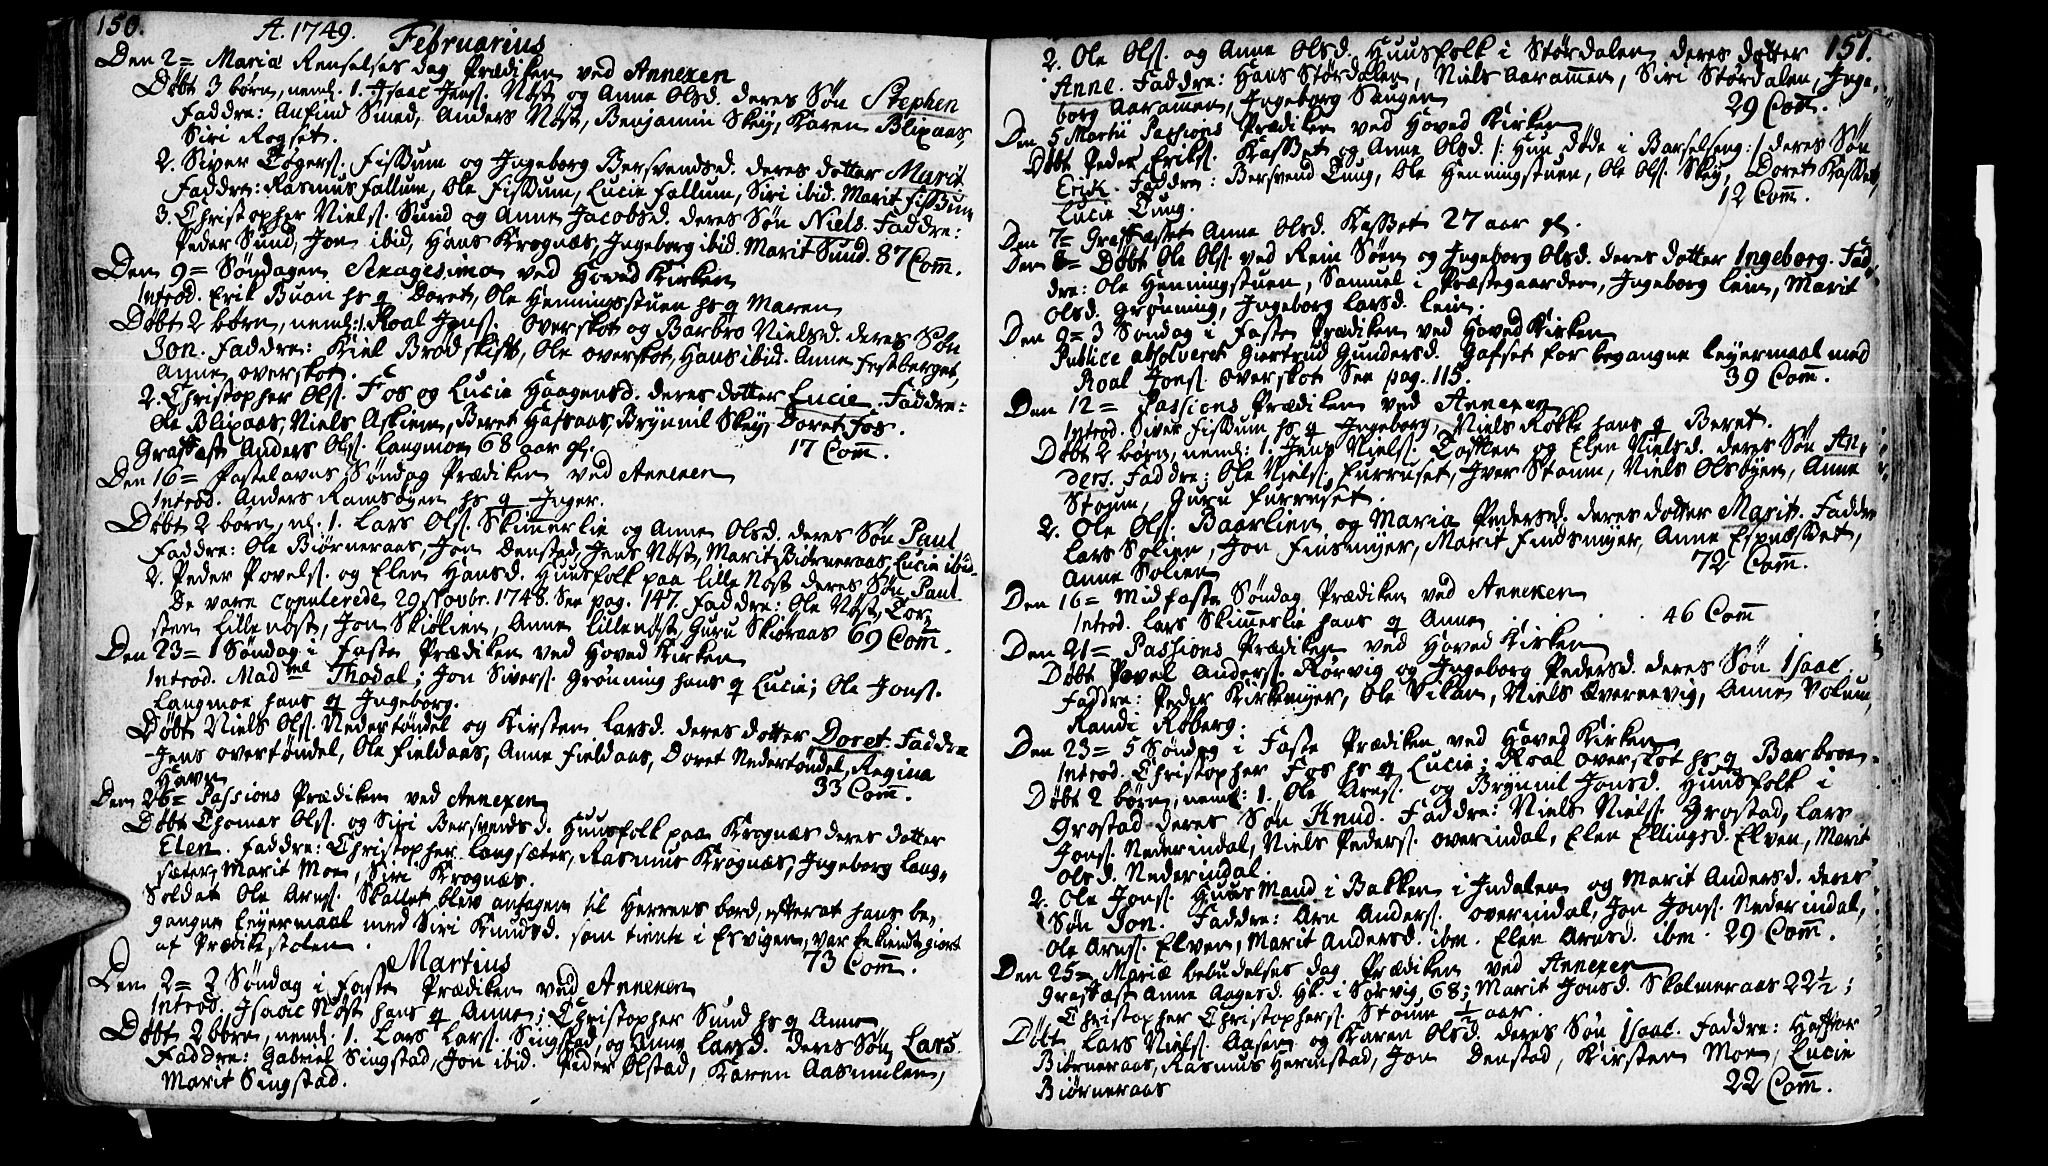 150. A. 1749. Februarius
Den 2= Mariæ Renselses dag Prædiken ved Annexen
Døbt 3 børn, neml. 1. Isaac Jensſ. Nøst og Anne Olsd. deres Søn Stephen
Faddre: Anfind Smed, Anders Nøst, Benjamin Skey, Karen Blixaas,
Siri Rogset.
2. Siver Togersſ. Fissum og Ingeborg Bersvendsd. deres dotter Marit
Faddre: Rasmus Fallum, Ole Fissum, Lucie Fallum, Siri ibid. Marit Fissum
3. Christopher Nielsſ. Sund og Anne Jacobsd. deres Søn Niels. Faddre:
Peder Sund, Jon ibid, Hans Krognæs, Ingeborg ibid. Marit Sund. 87 Com̄.
Den 9= Søndagen Sexagesima ved Hoved Kirken
Introd. Erik Buan hs q Doret, Ole Henningsstuen hs q Maren
Døbt 2 børn, neml: 1. Roal Jonsſ. Overskot og Barbro Nielsd. deres Søn
Jon. Faddre: Kiel Brødskift, Ole overskot, Hans ibid. Anne Festberget,
Anne overskot.
2. Christopher Olsſ. Fos og Lucie Haagensd. deres dotter Lucie. Faddre:
Ole Blixaas, Niels Askiem, Beret Hafsaas, Brynnil Skey, Doret Fos.
Græsfæst Anders Olsſ. Langmoe 68 aar gl. 17 Com̄.
Den 16= Fastelavns Søndag Prædiken ved Annexen
Introd. Anders Ramsøyen hs q Inger.
Døbt 2 børn, nl. 1. Lars Olsſ. Skim̄erlie og Anne Olsd. deres Søn Paul
Faddre: Ole Biørneraas, Jon Denstad, Jens Nøst, Marit Biørneraas, Lucie ibid.
2. Peder Povelsſ. og Elen Hansd. Huusfolk paa lille Nøst deres Søn Paul
De vare copulerede 29 Novbr. 1748. See pag. 147. Faddre: Ole Nøst, Tor,
sten lille nøst, Jon Skiølien, Anne lille nøst, Guru Skiøraas 69 Com̄.
Den 23= 1 Søndag i Faste Prædiken ved Hoved Kirken
Introd. Madme Thodal; Jon Siversſ. Grønning hans q Lucie; Ole Jonsſ.
Langmoe hans q Ingeborg.
Døbt Niels Olsſ. Nedertøndel og Kirsten Larsd. deres dotter Doret. Faddre
Jens overtøndel, Ole Fieldaas, Anne Fieldaas, Doret Nedertøndel, Regina
Havn 33 Com̄.
Den 26= Passions Prædiken ved Annexen
Døbt Thomas Olsſ. og Siri Bersvendsd. Huusfolk paa Krognæs deres dotter
Elen. Faddre: Christopher Langsæter, Rasmus Krognæs, Ingeborg Lang,
sæter, Marit Moe, Siri Krognæs.
Soldat Ole Arnsſ. Skallet blev antagen til Herrens bord, efterat hans be,
gangne Leyermaal med Siri Knudsd. som tiente i Esvigen, var bekiendtgiort
af Prædikestolen. 73 Com̄.
Martius
Den 2= 2 Søndag i Faste Prædiken ved Annexen
Introd. Isaac Nøst hans q Anne; Christopher Sund hs q Anne
Døbt 2 børn, neml. 1. Lars Larsſ. Singstad og Anne Larsd. deres Søn Lars.
Faddre: Gabriel Singstad, Jon ibid. Peder Ølstad, Karen Aasmulen,
Marit Singstad.
151.
2. Ole Olsſ. og Anne Olsd. Huusfolk i Størdalen deres dotter
Anne. Faddre: Hans Størdalen, Niels Aaram̄en, Siri Størdalen, Inge,
borg Aaramen, Ingeborg Saugen 29 Com̄.
Den 5 Martii Passions Prædiken ved Hoved Kirken
Døbt Peder Eriksſ. Kasset og Anne Olsd. /: hun døde i Barselseng :/ deres Søn
Erik. Faddre: Bersvend Tung, Ole Henningstuen, Ole Olsſ. Skey, Doret Kasset,
Lucie Tung. 12 Com̄.
Den 7= Græsfæstet Anne Olsd. Kasset 27 aar gl.
Den 8= Døbt Ole Olsſ. ved Rein Søen og Ingeborg Olsd. deres dotter Ingeborg. Fad,
dre: Ole Henningstuen, Samuel i Præstegaarden, Ingeborg Lein, Marit
Olsd. Grønning, Ingeborg Larsd. Lein.
Den 9= 3 Søndag i Faste Prædiken ved Hoved Kirken
Publice absolveret Giertrud Gundersd. Gafset for begangne Leyermaal med
Roal Jonsſ. Overskot See pag. 115. 39 Com̄.
Den 12= Passions Prædiken ved Annexen
Introd. Siver Fissum hs q Ingeborg, Niels Rokke hans q Beret.
Døbt 2 børn, neml: 1. Jens Nielsſ. Tofken og Elen Nielsd. deres Søn An,
ders. Faddre: Ole Nielsſ. Furruset, Iver Stamn, Niels Olsøyen, Anne
Stamn, Guru Furruset.
2. Ole Olsſ. Baarlien og Maria Pedersd. deres dotter Marit. Faddre
Lars Solien, Jon Finsmyer, Marit Findsmyer, Anne Espnæsset,
Anne Solien 72 Com̄.
Den 16= Midfaste Søndag Prædiken ved Annexen
Introd. Lars Skim̄erlie hans q Anne . . . 46 Com̄
Den 21= Passions Prædiken ved Hoved Kirken
Døbt Povel Andersſ. Rørvig og Ingeborg Pedersd. deres Søn Isaac.
Faddre: Peder Kirkmyer, Ole Vikan, Niels Overnevig, Anne Volum,
Randi Røberg.
Den 23= 5 Søndag i Faste Prædiken ved Hoved Kirken
Introd. Christopher Fos hs q Lucie; Roal overskot hs q Barbroe.
Døbt 2 børn, neml: 1. Ole Arnsſ. og Brynnil Jonsd. Huusfolk i
Grostad deres Søn Knud. Faddre: Niels Nielsſ. Grostad, Lars
Jonsſ. Nederindal, Niels Pedersſ. overindal, Elen Ellingsd. Elven, Marit
Olsd. Nederindal.
2. Ole Jonsſ. HuusMand i Bakken i Indalen og Marit Andersd. deres
Søn Jon. Faddre: Arn Andersſ. overindal, Jon Jonsſ. Nederindal,
Ole Arnsſ. Elven, Marit Andersd. ibm. Elen Arnsd. ibm. 29 Com̄.
Den 25= Mariæ bebudelses dag Prædiken ved Annexen
Græsfæst Anne Aagesd. Hl. i Sørvig 68; Marit Jonsd. Skalmeraas 22½;
Christopher Christophersſ. Stamne ½ aar.
Døbt Lars Nielsſ. Aasen og Karen Olsd. deres Søn Isaac. Faddre: Haftor
Biørneraas, Rasmus Hermstad, Jon Denstad, Kirsten Moe, Lucie
Biørneraas 22 Com̄.